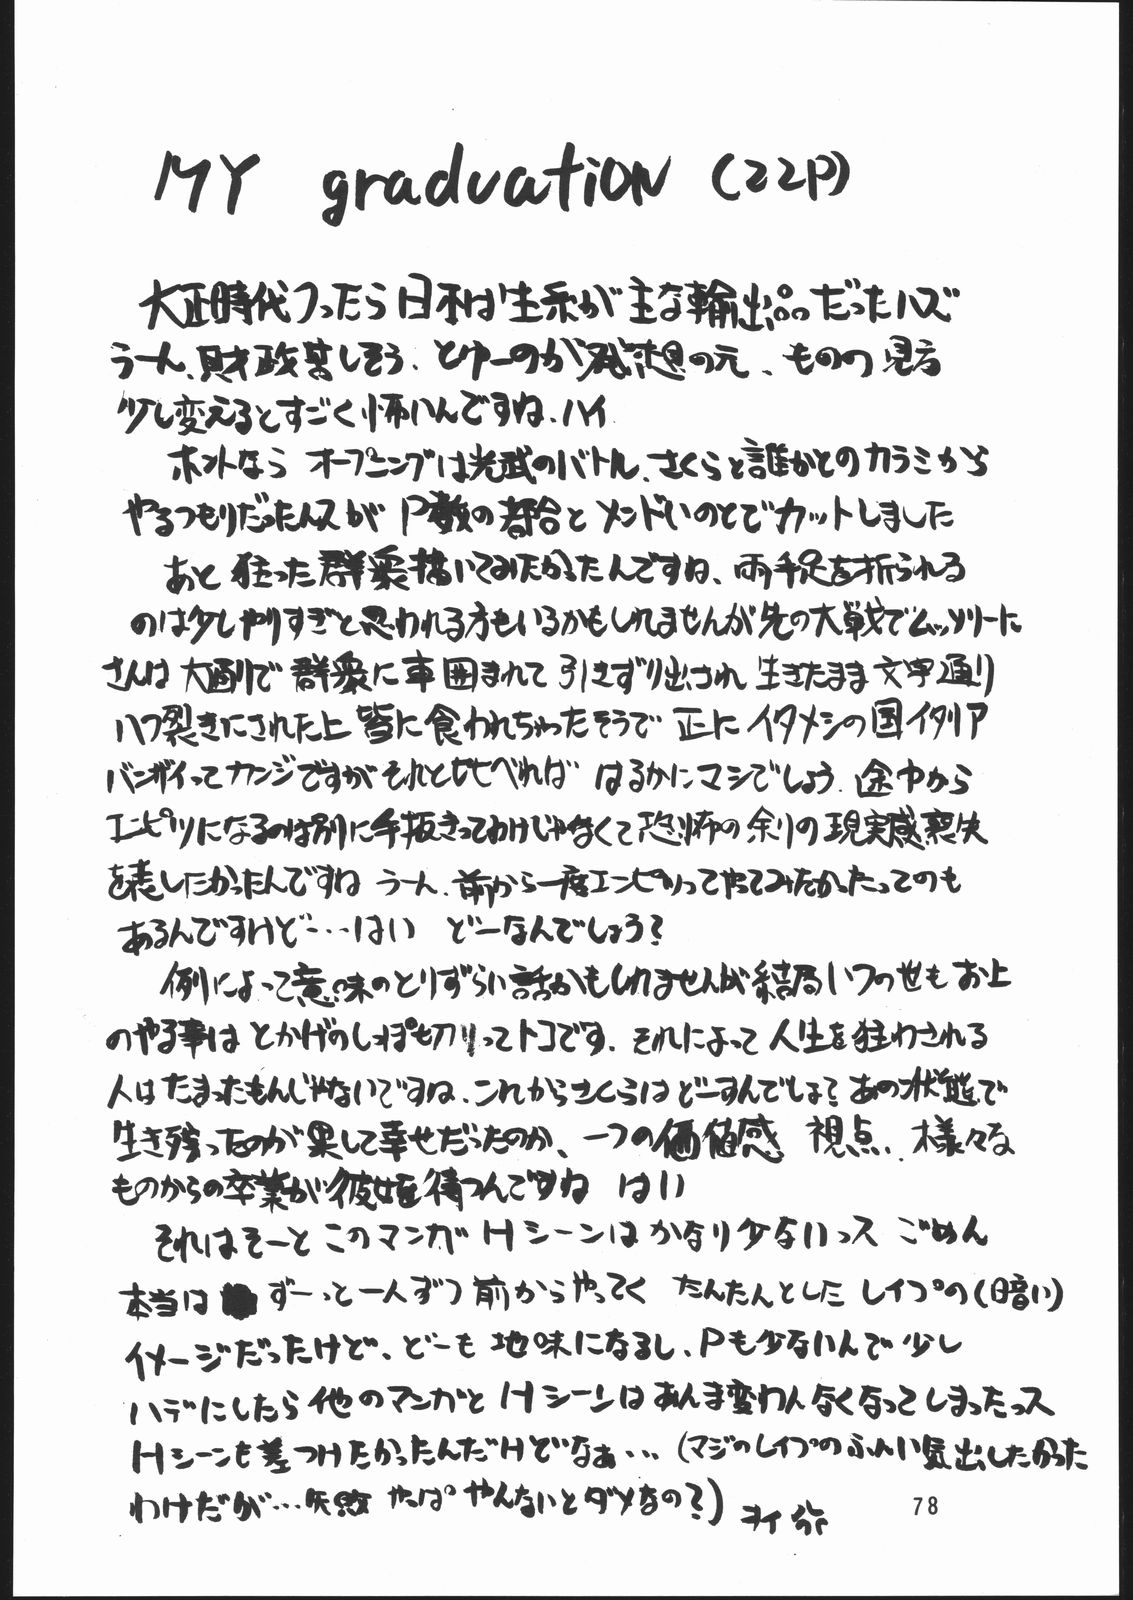 MY graduation (22P)
大正時代つったら日本は生糸が主な輸出品だったハズ
うーん、財政苦しそう、とゆーのが発想の元、ものの見方
少し変えるとすごく怖いんですね、ハイ
ホントなら オープニングは光武のバトル、さくらと誰かとのカラミから
やるつもりだったんスが P数の都合と メンドいのとでカットしました
あと 狂った群衆描いてみたかったんですね、両手足を折られる
のは少しやりすぎと思われる方もいるかもしれませんが先の大戦でムッソリーに
さんは 大通りで 群衆に車囲まれて 引きずり出され 生きたまま文字通り
八つ裂きにされた上 皆に食われちゃったそうで 正にイタメシの国イタリア
バンザイってカンジですがそれと比べれば はるかにマシでしょう、途中から
エンピツになるのは別に手抜きってわけじゃなくて恐怖の余りの現実感喪失
を表したかったんですね うーん、前から一度エンピツってやってみたかったってのも
あるんですけど……はい どーなんでしょう?
例によって意味のとりずらい話かもしれませんが結局いつの世もお上
のやる事は とかげのしっぽ切りってトコです、それによって人生を狂わされる
人はたまったもんじゃないですね、これからさくらはどーすんでしょ?あの状態で
生き残ったのが果して幸せだったのか、一つの価値感 視点、様々な
ものからの卒業が彼女を待つんですね はい
それはそーと このマンガ Hシーンはかなり少ないっス ごめん
本当は ずーっと一人ずつ前からやってく たんたんとした レイプの(暗い)
イメージだったけど、どーも 地味になるし、Pも少ないんで少し
ハデにしたら他のマンガとHシーンはあんま変わんなくなってしまったっス
Hシーンも差つけたかったんだけどなぁ…(マジのレイプのふんい気出したかった
わけだが…失敗 やっぱ やんないとダメなの?)
78